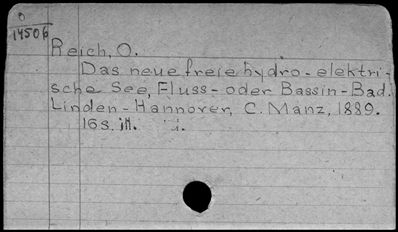 0
14506
Reich, O.
Das neue freie hydro-elektri-
sche See, Fluss- oder Bassin-Bad.
Linden-Hannover, C. Manz, 1889.
16s. ill.